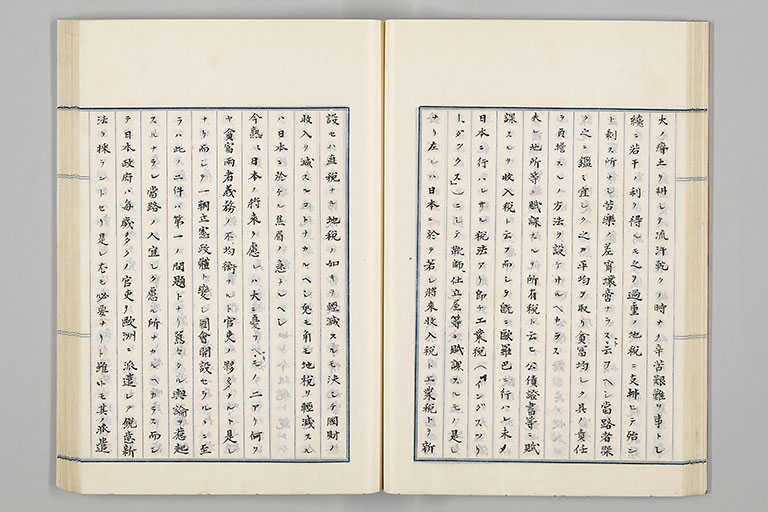 大ノ瘠土ヲ耕シテ流汗乾クノ時ナク辛苦艱難ヲ事トシ
纔ニ若干ノ利ヲ得ルモ之ヲ過重ノ地税ニ支辨シテ殆ン
ト剰ス所ナシ苦樂ノ差宵壌啻ナラスト云フヘシ當路者深
ク之ニ鑑ミ宜シク之カ平均ヲ取リ貧富均シク其ノ責任
ヲ負擔スルノ方法ヲ設ケサルヘカラス
夫レ地所等ニ賦課スルヲ所有税ト云ヒ公債證書等ニ賦
課スルヲ收入税ト云フ而シテ既ニ歐羅巴ニ行ハレ未タ
日本ニ行ハレサル税法アリ即チ工業税(インダスツリ
ー、タックス」)ニシテ靴師仕立屋等ニ賦課スルモノ是レ
ナリ左レハ日本ニ於テ若シ將來收入税ト工業税トヲ新
設セハ直税ナル地税ノ如キヲ輕減スルモ決シテ國財ノ
收入ヲ減スルコトナカルヘシ兎モ角モ地税ヲ輕減スル
ハ日本ニ於ケル焦眉ノ急ナルヘシ
今熟ニ日本ノ將來ヲ慮レハ大ニ憂フヘキモノ二アリ何ソ
ヤ貧富兩者義務ノ不均衡ナルト官吏ノ夥多ナルト是レ
ナリ而シテ一朝立憲政體ト變シ國會開設セラルヽニ至
ラハ此ノ二件ハ第一ノ問題トナリ囂々タル輿論ヲ惹起
スルナラン當路ノ人宜シク慮ル所ナカルヘカラス而シ
テ日本政府ハ毎歳多クノ官吏ヲ歐洲ニ派遣シテ鋭意新
法ヲ採ラントセリ是レ尤モ必要ナリト雖モ其ノ派遣